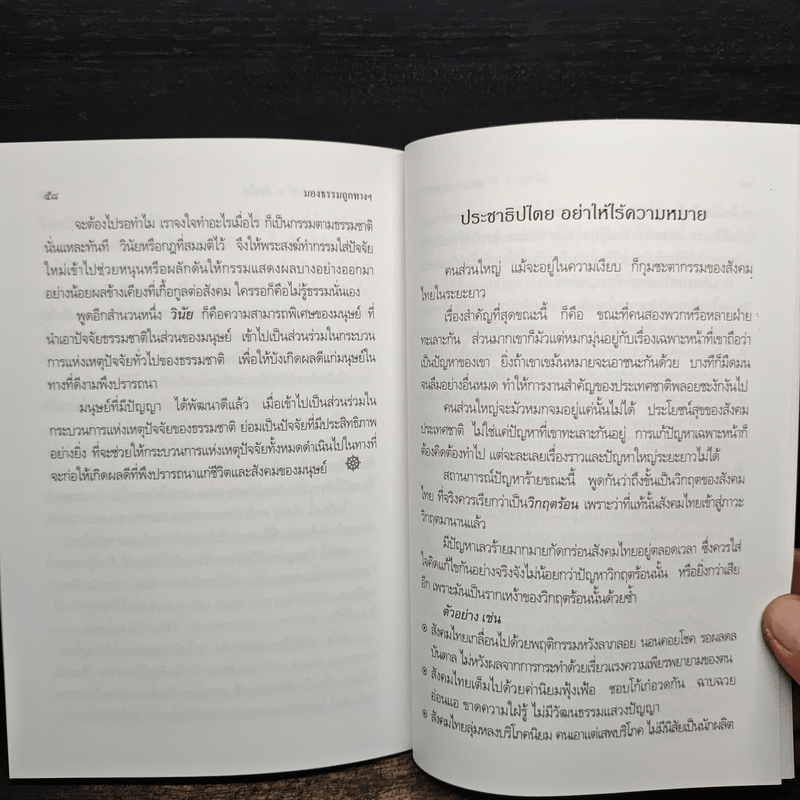 ๕๘
มองธรรมถูกทางฯ
จะต้องไปรอทำไม เราจงใจทำอะไรเมื่อไร ก็เป็นกรรมตามธรรมชาติ
นั่นแหละทันที วินัยหรือกฎที่สมมติไว้ จึงให้พระสงฆ์ทำกรรมใส่ปัจจัย
ใหม่เข้าไปช่วยหนุนหรือผลักดันให้กรรมแสดงผลบางอย่างออกมา
อย่างน้อยผลข้างเคียงที่เกื้อกูลต่อสังคม ใครรอก็คือไม่รู้ธรรมนั่นเอง
พูดอีกสำนวนหนึ่ง วินัย ก็คือความสามารถพิเศษของมนุษย์ ที่
นำเอาปัจจัยธรรมชาติในส่วนของมนุษย์ เข้าไปเป็นส่วนร่วมในกระบวน
การแห่งเหตุปัจจัยทั่วไปของธรรมชาติ เพื่อให้บังเกิดผลดีแก่มนุษย์ใน
ทางที่ดีงามพึงปรารถนา
มนุษย์ที่มีปัญญา ได้พัฒนาดีแล้ว เมื่อเข้าไปเป็นส่วนร่วมใน
กระบวนการแห่งเหตุปัจจัยของธรรมชาติ ย่อมเป็นปัจจัยที่มีประสิทธิภาพ
อย่างยิ่ง ที่จะช่วยให้กระบวนการแห่งเหตุปัจจัยทั้งหมดดำเนินไปในทางที่
จะก่อให้เกิดผลดีที่พึงปรารถนาแก่ชีวิตและสังคมของมนุษย์
ประชาธิปไตย อย่าให้ไร้ความหมาย
คนส่วนใหญ่ แม้จะอยู่ในความเงียบ ก็กุมชะตากรรมของสังคม
ไทยในระยะยาว
เรื่องสำคัญที่สุดขณะนี้ ก็คือ ขณะที่คนสองพวกหรือหลายฝ่าย
ทะเลาะกัน ส่วนมากเขาก็มัวแต่หมกมุ่นอยู่กับเรื่องเฉพาะหน้าที่เขาถือว่า
เป็นปัญหาของเขา ยิ่งถ้าเขาเขม้นหมายจะเอาชนะกันด้วย บางทีก็มืดมน
จนลืมอย่างอื่นหมด ทำให้การงานสำคัญของประเทศชาติพลอยชะงักงันไป
คนส่วนใหญ่จะมัวหมกจมอยู่แค่นั้นไม่ได้ ประโยชน์สุขของสังคม
ประเทศชาติ ไม่ใช่แค่ปัญหาที่เขาทะเลาะกันอยู่ การแก้ปัญหาเฉพาะหน้าก็
ต้องคิดต้องทำไป แต่จะละเลยเรื่องราวและปัญหาใหญ่ระยะยาวไม่ได้
สถานการณ์ปัญหาร้ายขณะนี้ พูดกันว่าถึงขั้นเป็นวิกฤตของสังคม
ไทย ที่จริงควรเรียกว่าเป็นวิกฤตร้อน เพราะว่าที่แท้นั้นสังคมไทยเข้าสู่ภาวะ
วิกฤตมานานแล้ว
มีปัญหาเลวร้ายมากมายกัดกร่อนสังคมไทยอยู่ตลอดเวลา ซึ่งควรใส่
ใจคิดแก้ไขกันอย่างจริงจังไม่น้อยกว่าปัญหาวิกฤตร้อนนั้น หรือยิ่งกว่าเสีย
อีก เพราะมันเป็นรากเหง้าของวิกฤตร้อนนั้นด้วยซ้ำ
ตัวอย่าง เช่น
๏ สังคมไทยเกลื่อนไปด้วยพฤติกรรมหวังลาภลอย นอนคอยโชค รอผลดล
บันดาล ไม่หวังผลจากการกระทำด้วยเรี่ยวแรงความเพียรพยายามของตน
๏ สังคมไทยเต็มไปด้วยค่านิยมฟุ้งเฟ้อ ชอบโก้เก๋อวดกัน ฉาบฉวย
อ่อนแอ ขาดความใฝ่รู้ ไม่มีวัฒนธรรมแสวงปัญญา
๏ สังคมไทยลุ่มหลงบริโภคนิยม คนเอาแต่เสพบริโภค ไม่มีนิสัยเป็นนักผลิต